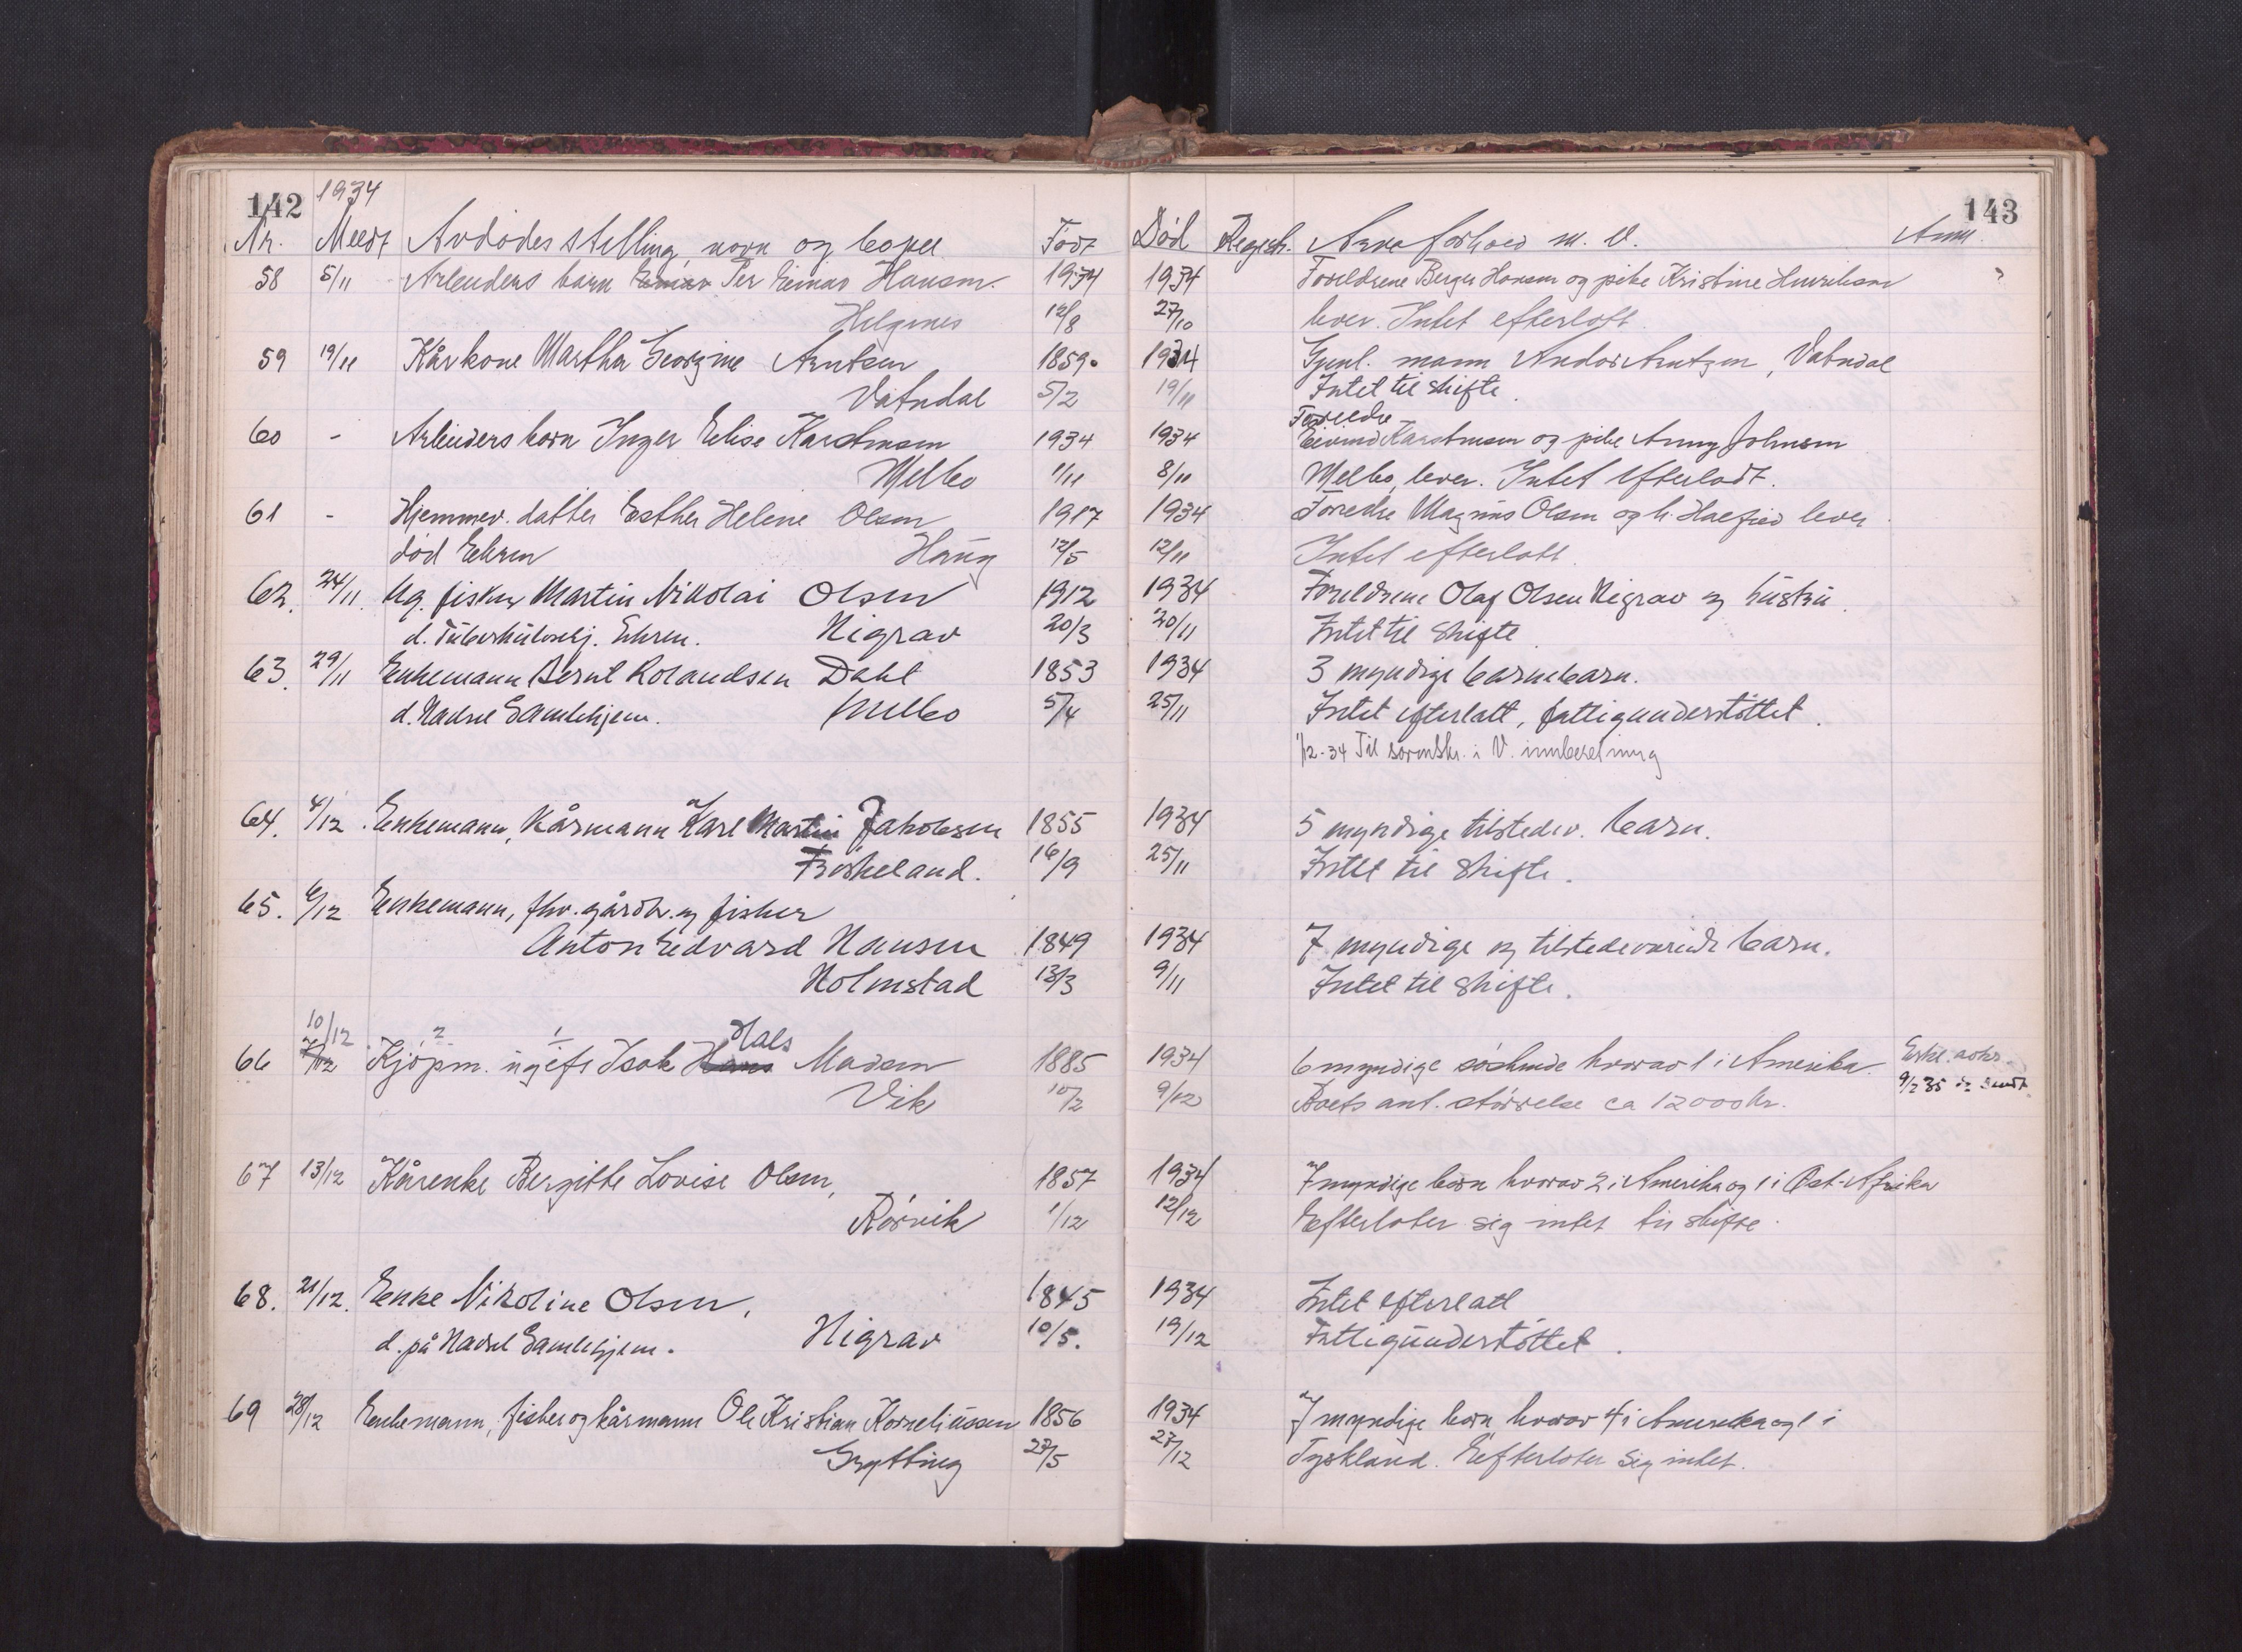 142
1934
Nr. Meldt Avdødes stilling, navn og bopel Født
58 5/11 Arbeiders barn Einar Per Einar Hansen. 1934
Helgenes 12/8
59 19/11 Kårkone Martha Georgine Arntsen 1859.
Vatndal 5/2
60 - Arbeiders barn Inger Elise Karstensen 1934
Melbo 1/11
61 - Hjemmev. datter Esther Helene Olsen 1917
død Ekren Haug 12/5
62. 24/11. Ug. fisker Martin Nikolai Olsen 1912
d. Tüberkülosehj. Ekren. Higrav 20/3
63. 29/11 Enkemann Bernt Rolandsen Dahl 1853
d. Hadsel Gamlehjem. Melbo 5/4
64. 4/12. Enkemann, Kårmann Karl Martin Jakobsen 1855
Frøskeland. 16/9
65. 6/12 Enkemann, fhv. gårdbr. og fisker
Anton Edvard Hansen 1849
Holmstad 13/3
10/12 2 1 Hals
66 7/12 Kjøpm. ugift Isak Hans Madsen 1885
Vik 10/2
67 13/12 Kårenke Bergitte Lovise Olsen, 1857
Rørvik 1/12
68. 21/12. Enke Nikoline Olsen, 1845
d. på Hadsel Gamlehjem. Higrav 10/5.
69 28/12 Enkemann, fisker og kårmann Ole Kristian Korneliussen 1856
Grytting 27/5
143
Død Registr. Arveforhold m. v. Anm.
1934 Foreldrene Berger Hansen og pike Kristine Henriksen
27/10 lever. Intet efterlatt.
1934 Gjenl. mann Andor Arntzen, Vatndal
19/11 Intet til skifte.
Foreldre
1934 Eivind Karstensen og pike Anny Johnsen
8/11 Melbo, lever. Intet efterladt.
1934 Foreldre Magnus Olsen og h. Halfrid lever
12/11 Intet efterlatt.
1934 Foreldrene Olaf Olsen Higrav og hüstrü.
20/11 Intet til skifte
1934 3 myndige barnebarn.
25/11 Intet efterlatt, fattigunderstøttet.
1/12-34 Til sorenskr. i V. innberetning
1934 5 myndige tilstedev. barn.
25/11 Intet til skifte.
1934 7 myndige og tilstedeværende barn.
9/11 Intet til skifte.
1934 6 myndige søskende hvorav 1 i Amerika
9/12 Boets ant. størrelse ca 12000 kr.
9/2 35 sendt
1934 7 myndige barn hvorav 2 i Amerika og 1 i Øst-Afrika
12/12 Efterlater sig intet til skifte.
1934 Intet efterlatt
19/12 Fattigünderstøttet.
1934 7 myndige barn, hvorav 4 i Amerika og 1 i
27/12 Tyskland. Efterlater sig intet.